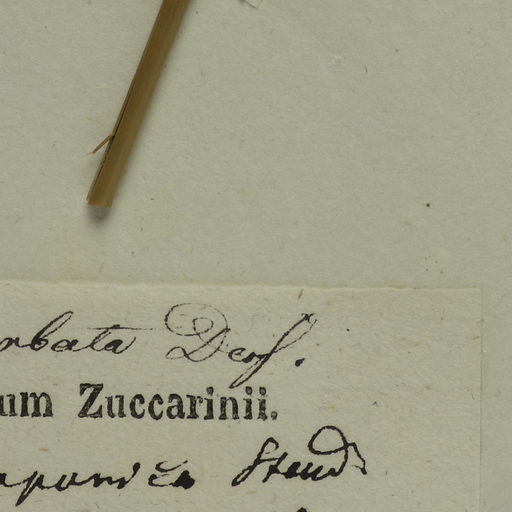 rbata Desf.
um Zuccarinii.
aponica Steud